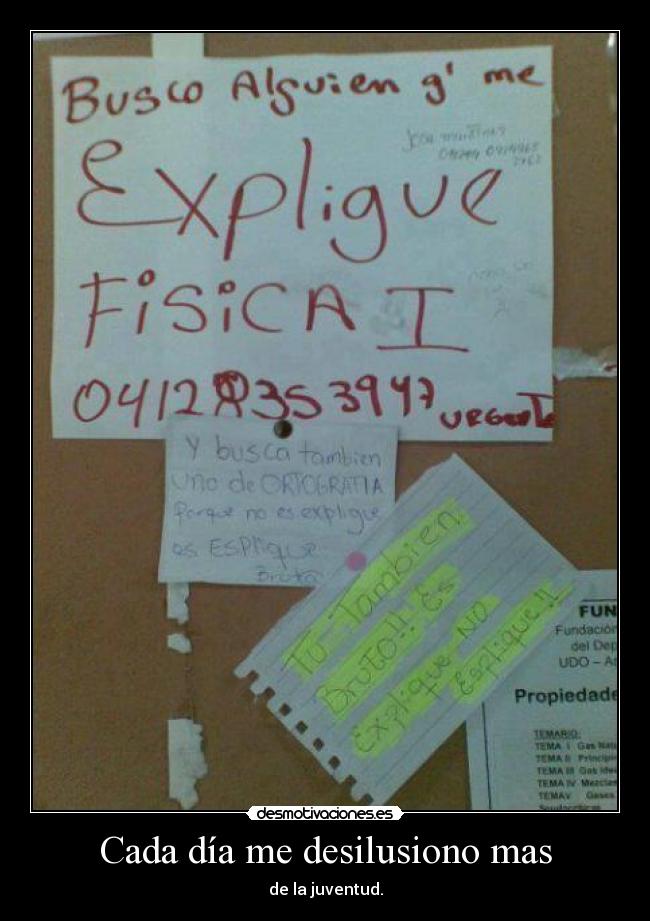 Busco Alguien q' me
Explique
FísicA I
0412 8353947 URGENTE
Y busca tambien
uno de ORTOGRAFIA
Porque no es explique
es ESPlique
Bruta
Tu Tambien
BRUTO!! Es
Explique NO
Esplique!!
FUN
Fundación
del Dep
UDO – A
Propiedade
TEMARIO:
TEMA I Gas Natu
TEMA II Principi
TEMA III Gas Idea
TEMA IV Mezclas
TEMA V Gases
desmotivaciones.es
Cada día me desilusiono mas
de la juventud.